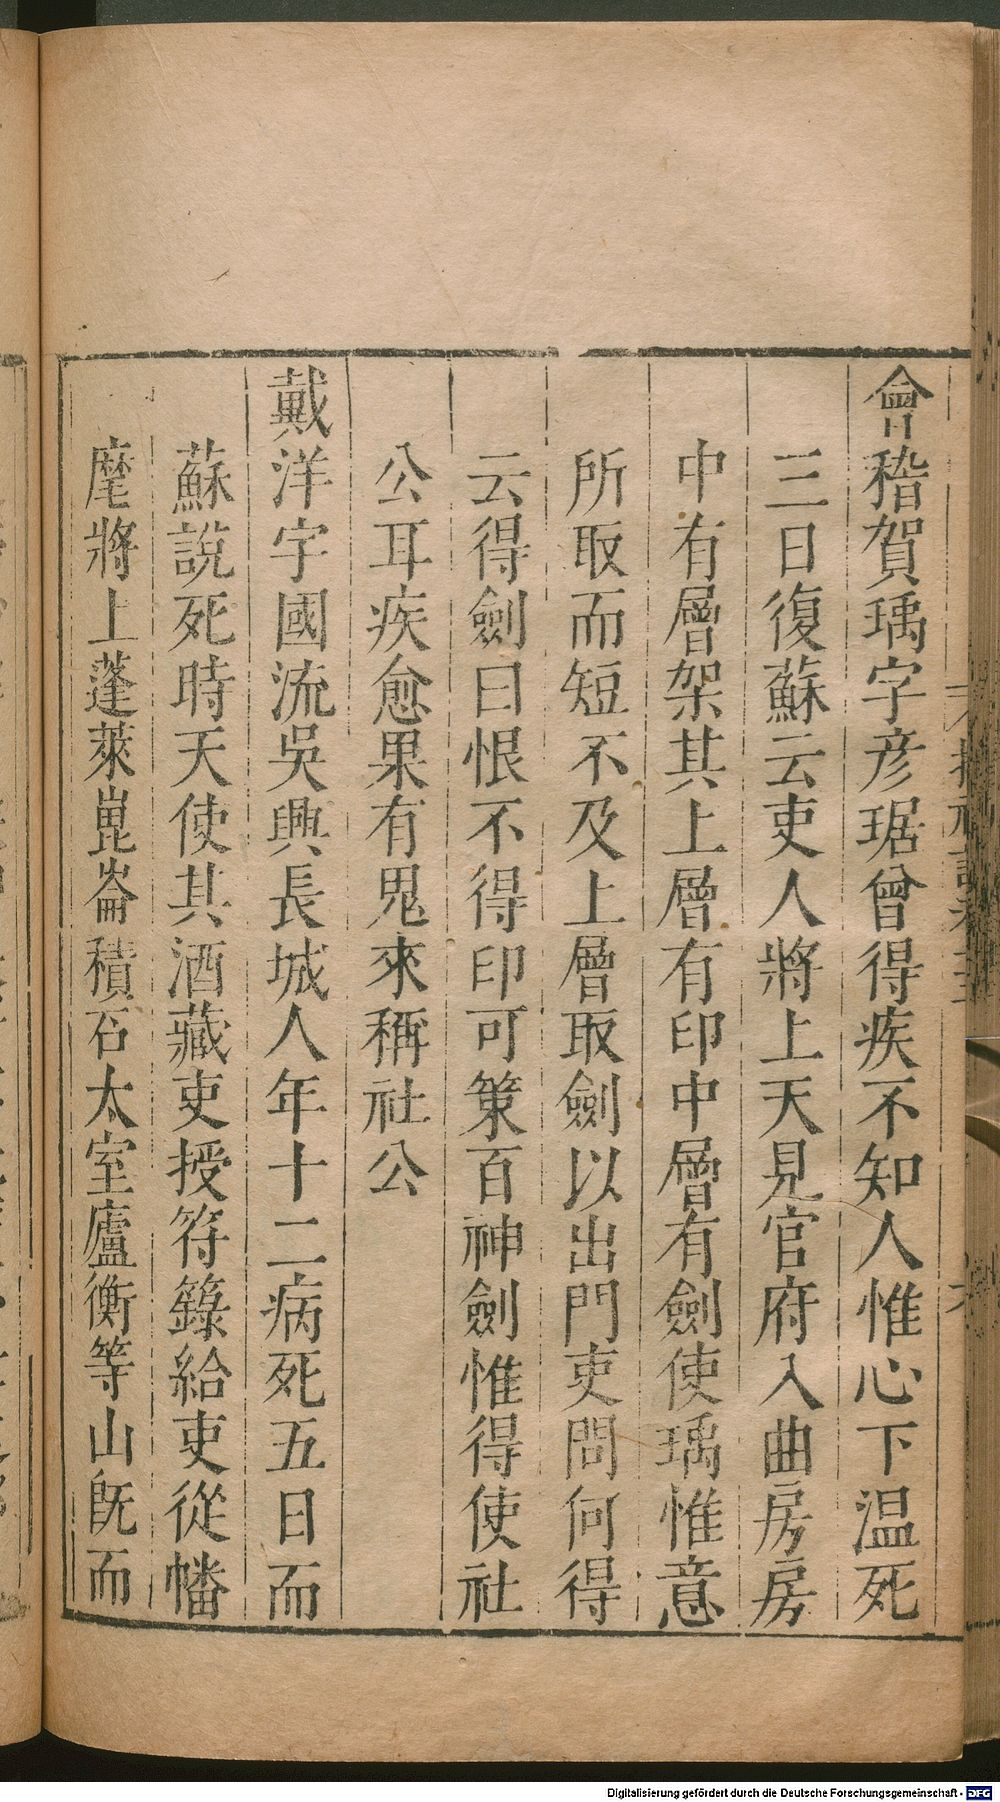 會稽賀瑀字彦琚曾得疾不知人惟心下温死
三日復蘇云吏人將上天見官府入曲房房
中有層架其上層有印中層有劍使瑀惟意
所取而短不及上層取劍以出門吏問何得
云得劍曰恨不得印可策百神劍惟得使社
公耳疾愈果有鬼來稱社公
戴洋字國流吳興長城人年十二病死五日而
蘇說死時天使其酒藏吏授符籙給吏從幡
麾將上蓬萊崑崙積石太室廬衡等山旣而
Digitalisierung gefördert durch die Deutsche Forschungsgemeinschaft - DFG